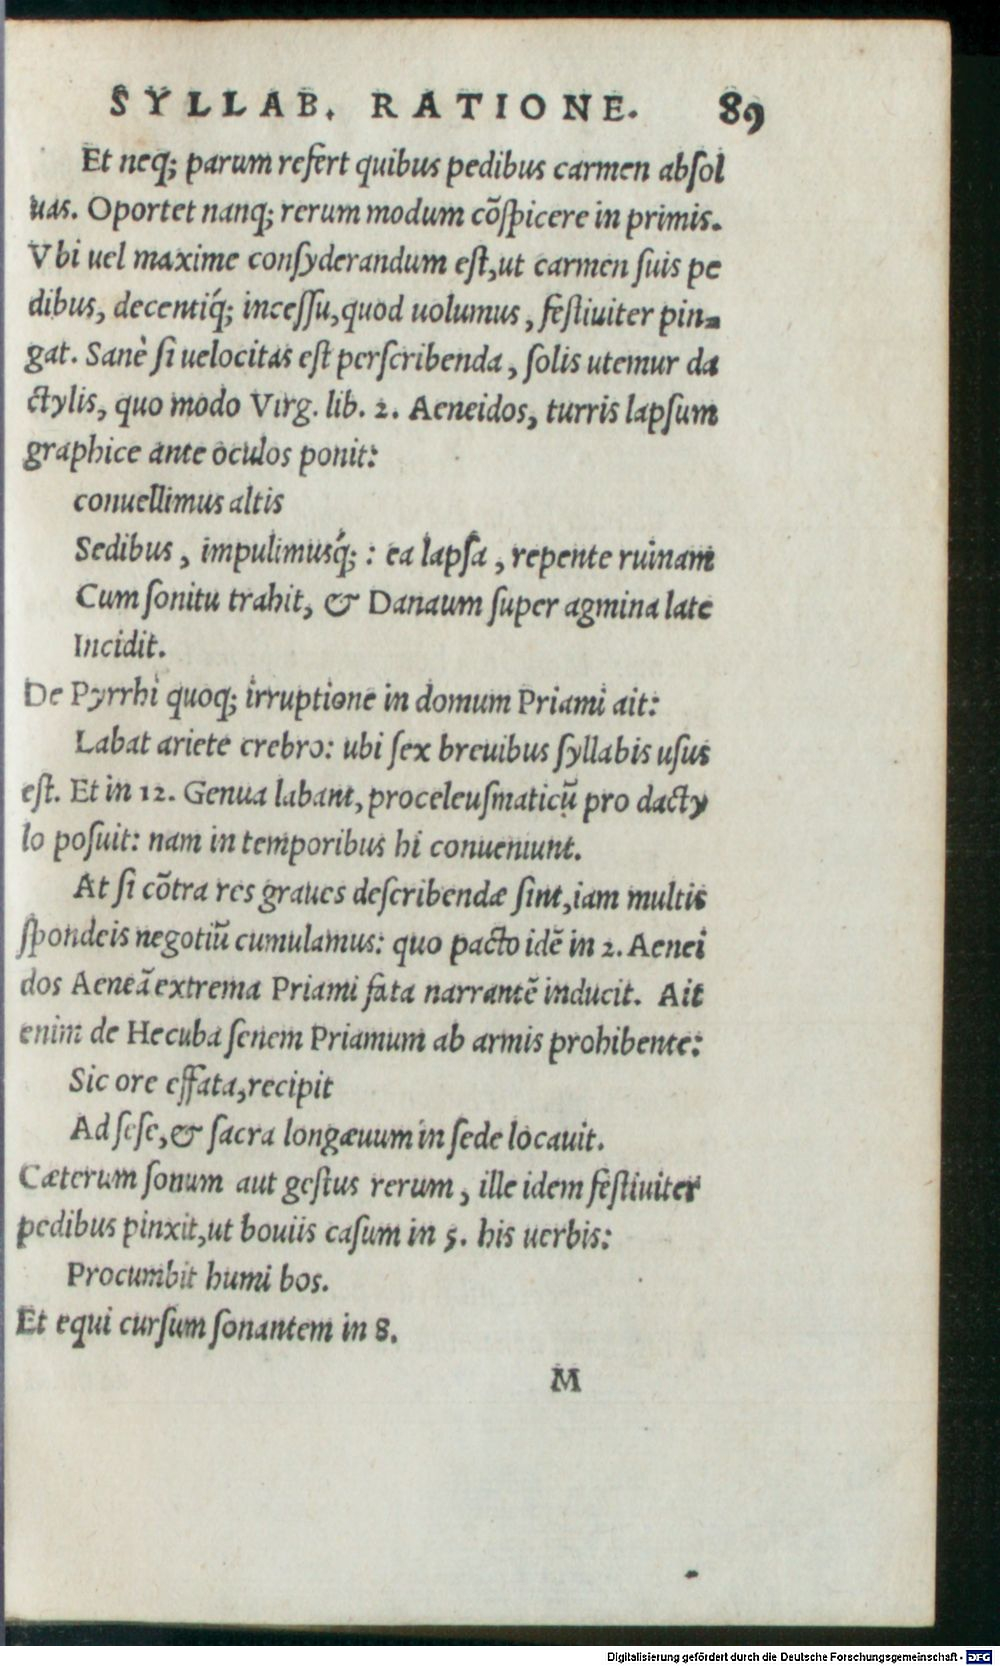 SYLLAB. RATIONE. 89
Et neq; parum refert quibus pedibus carmen absol
uas. Oportet nanq; rerum modum cõspicere in primis.
Vbi uel maxime consyderandum est,ut carmen suis pe
dibus, decentiq́; incessu,quod uolumus, festiuiter pin-
gat. Sanè si uelocitas est perscribenda, solis utemur da
ctylis, quo modo Virg. lib. 2. Aeneidos, turris lapsum
graphice ante oculos ponit:
conuellimus altis
Sedibus, impulimusq́; : ea lapsa, repente ruinam
Cum sonitu trahit, & Danaum super agmina late
Incidit.
De Pyrrhi quoq; irruptione in domum Priami ait:
Labat ariete crebro: ubi sex breuibus syllabis usus
est. Et in 12. Genua labant, proceleusmaticũ pro dacty
lo posuit: nam in temporibus hi conueniunt.
At si cõtra res graues describendæ sint,iam multis
spondeis negotiũ cumulamus: quo pacto idẽ in 2. Aenei
dos Aeneã extrema Priami fata narrantẽ inducit. Ait
enim de Hecuba senem Priamum ab armis prohibente:
Sic ore effata,recipit
Ad sese,& sacra longæuum in sede locauit.
Cæterum sonum aut gestus rerum, ille idem festiuiter
pedibus pinxit,ut bouiis casum in 5. his uerbis:
Procumbit humi bos.
Et equi cursum sonantem in 8.
M
Digitalisierung gefördert durch die Deutsche Forschungsgemeinschaft - DFG